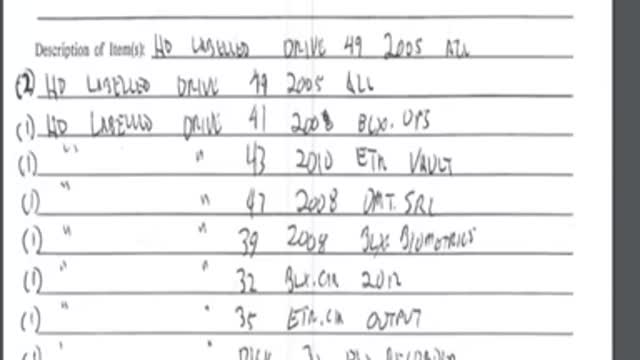 Description of Item(s): HD LABELLED DRIVE 49 2005 ALL
(2) HD LABELLED DRIVE 49 2005 ALL
(1) HD LABELLED DRIVE 41 2008 BLX. OPS
(1) " " 43 2010 ETR VAULT
(1) " " 47 2008 DMT. SRL
(1) " " 39 2008 BLX. BIOMETRICS
(1) " " 32 BLX. 2012
(1) " " 35 ETR. OUTPUT
(1) " "